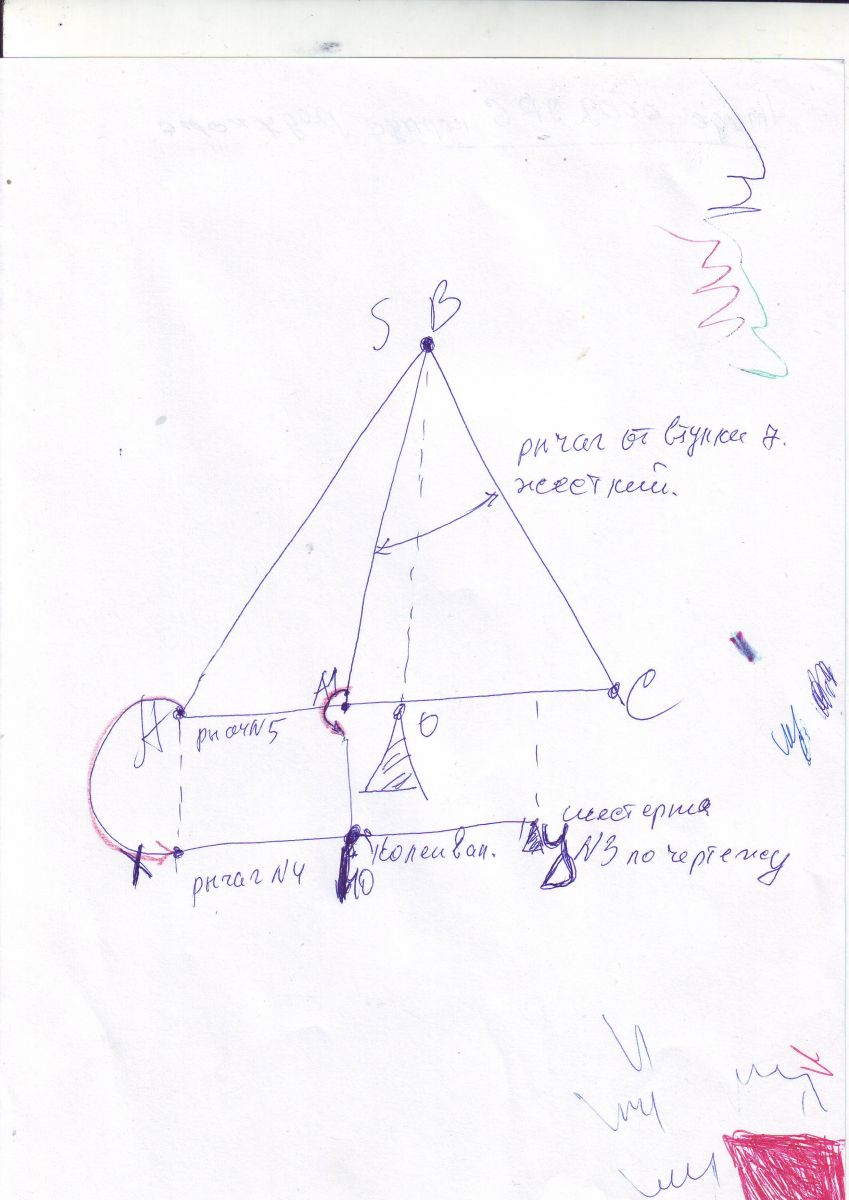 S B
рычаг от втулки 7.
жесткий.
А
М
С
рычаг N5
О
К
рычаг N4
Ю
Коленвал.
У
шестерня
N3 по чертежу